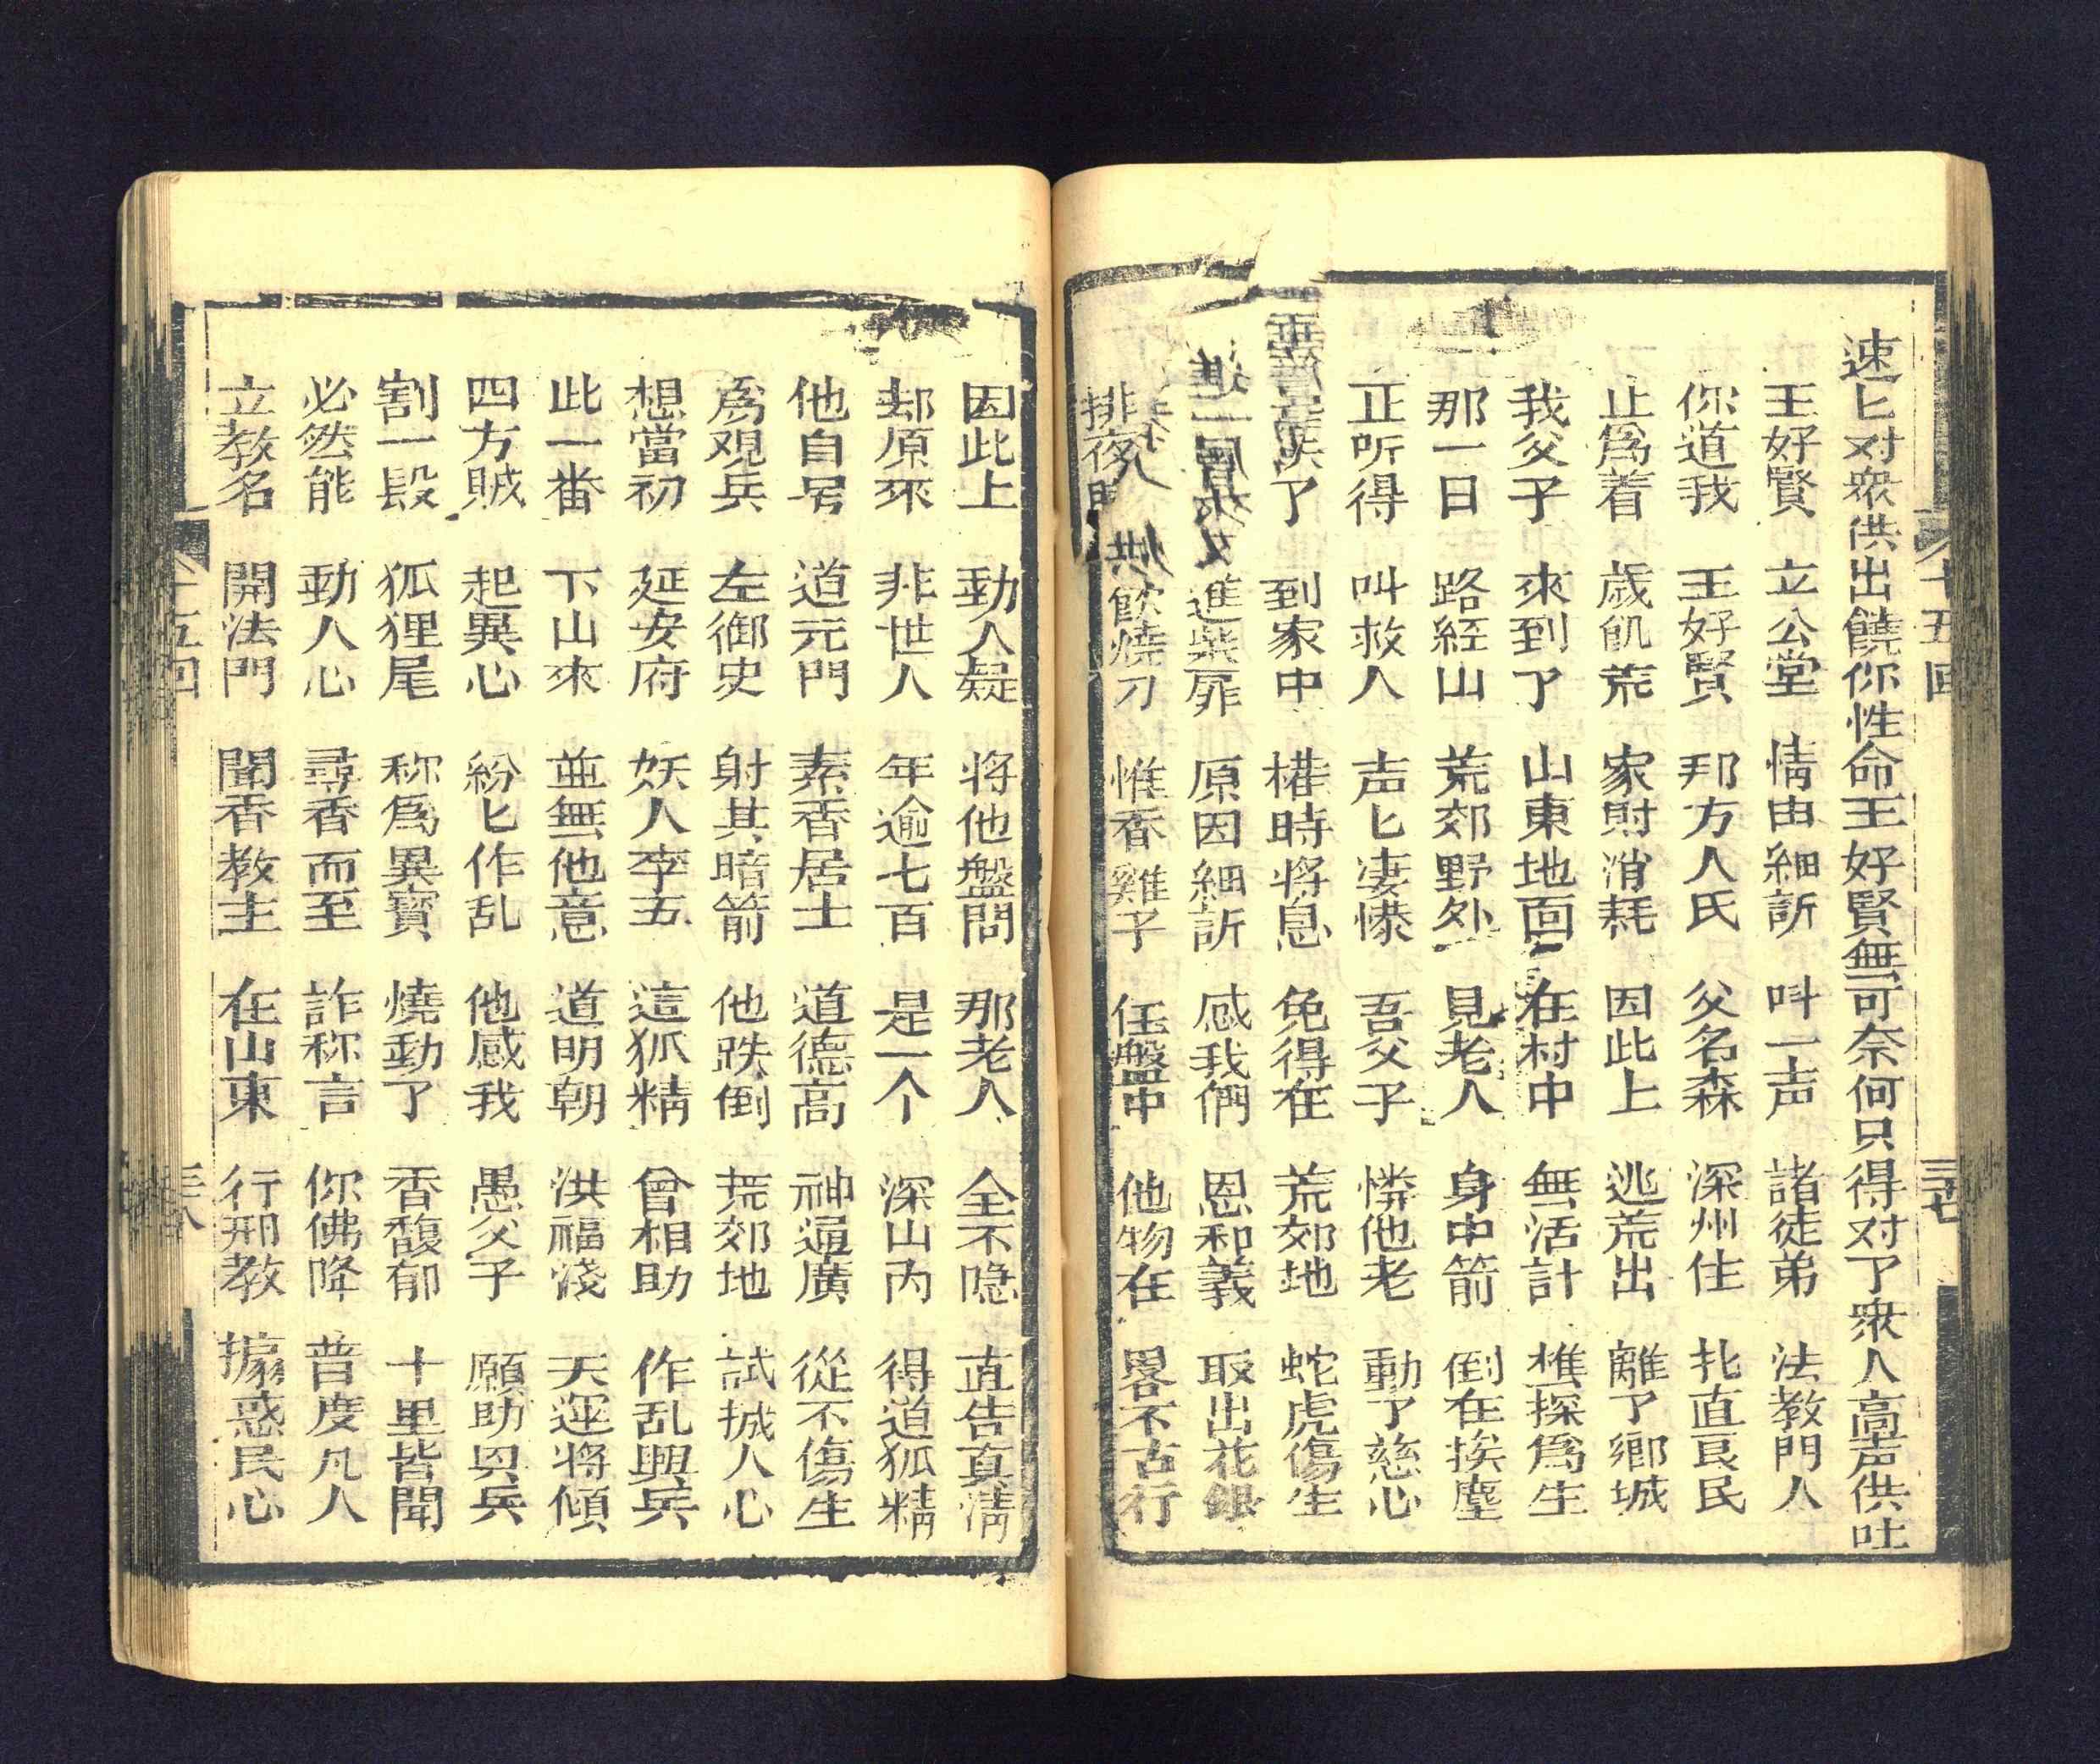 十五回
三七
速匕对衆供出饒你性命王好賢無可奈何只得对了衆人高声供吐
王好賢 立公堂 情由細訴 叫一声 諸徒弟 法教門人
你道我 王好賢 那方人氏 父名森 深州住 北直良民
止爲着 歲飢荒 家財消耗 因此上 逃荒出 離了鄉城
我父子 來到了 山東地面 在村中 無活計 樵採爲生
那一日 路経山 荒郊野外 見老人 身中箭 倒在挨塵
正听得 叫救人 声匕凄慘 吾父子 憐他老 動了慈心
了 到家中 權時將息 免得在 荒郊地 蛇虎傷生
進柴扉 原因細訴 感我倆 恩和義 取出花銀
排夜 飲燒刀 惟香雞子 任盤中 他物在 畧不古行
因此上 動人疑 將他盤問 那老人 全不隐 直告真情
却原來 非世人 年逾七百 是一个 深山內 得道狐精
他自号 道元門 素香居士 道德高 神通廣 從不傷生
爲观兵 左御史 射其暗箭 他跌倒 荒郊地 試拭人心
想當初 延安府 妖人李五 這狐精 曾相助 作乱興兵
此一畨 下山來 並無他意 道明朝 洪福淺 天運將傾
四方賊 起異心 紛匕作乱 他感我 愚父子 願助恩兵
割一段 狐狸尾 称爲異寳 燒動了 香馥郁 十里皆聞
必然能 動人心 尋香而至 詐称言 你佛降 普度凡人
立教名 開法門 聞香教主 在山東 行邪教 搧惑民心
十五回
三八